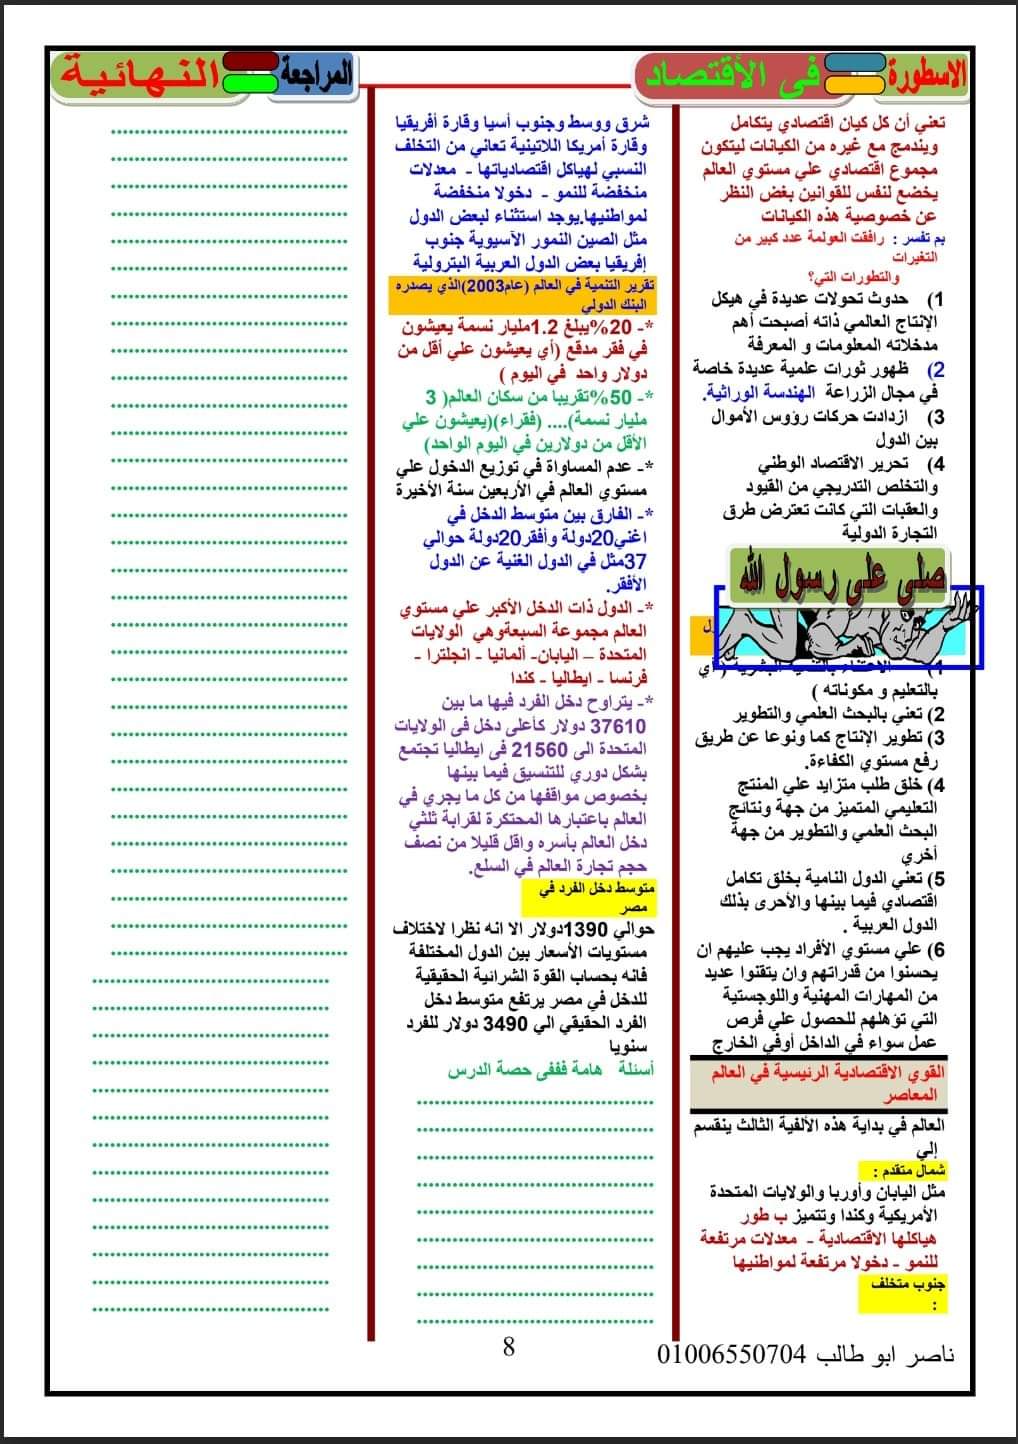 الاسطورة
فى الأقتصاد
المراجعة
النهائية
تعني أن كل كيان اقتصادي يتكامل
ويندمج مع غيره من الكيانات ليتكون
مجموع اقتصادي علي مستوي العالم
يخضع لنفس للقوانين بغض النظر
عن خصوصية هذه الكيانات
بم تفسر : رافقت العولمة عدد كبير من
التغيرات
والتطورات التي؟
1) حدوث تحولات عديدة في هيكل
الإنتاج العالمي ذاته أصبحت أهم
مدخلاته المعلومات و المعرفة
2) ظهور ثورات علمية عديدة خاصة
في مجال الزراعة الهندسة الوراثية.
3) ازدادت حركات رؤوس الأموال
بين الدول
4) تحرير الاقتصاد الوطني
والتخلص التدريجي من القيود
والعقبات التي كانت تعترض طرق
التجارة الدولية
صلى على رسول الله
1) الاعتناء بالتنمية البشرية ( أي
بالتعليم و مكوناته )
2) تعني بالبحث العلمي والتطوير
3) تطوير الإنتاج كما ونوعا عن طريق
رفع مستوي الكفاءة.
4) خلق طلب متزايد علي المنتج
التعليمي المتميز من جهة ونتائج
البحث العلمي والتطوير من جهة
أخري
5) تعني الدول النامية بخلق تكامل
اقتصادي فيما بينها والأحرى بذلك
الدول العربية .
6) علي مستوي الأفراد يجب عليهم ان
يحسنوا من قدراتهم وان يتقنوا عديد
من المهارات المهنية واللوجستية
التي تؤهلهم للحصول علي فرص
عمل سواء في الداخل أوفي الخارج
القوي الاقتصادية الرئيسية في العالم
المعاصر
العالم في بداية هذه الألفية الثالث ينقسم
إلي
شمال متقدم :
مثل اليابان وأوربا والولايات المتحدة
الأمريكية وكندا وتتميز ب طور
هياكلها الاقتصادية - معدلات مرتفعة
للنمو - دخولا مرتفعة لمواطنيها
جنوب متخلف
:
شرق ووسط وجنوب أسيا وقارة أفريقيا
وقارة أمريكا اللاتينية تعاني من التخلف
النسبي لهياكل اقتصادياتها - معدلات
منخفضة للنمو - دخولا منخفضة
لمواطنيها.يوجد استثناء لبعض الدول
مثل الصين النمور الآسيوية جنوب
إفريقيا بعض الدول العربية البترولية
تقرير التنمية في العالم (عام2003)الذي يصدره
البنك الدولي
*- 20%يبلغ 1.2مليار نسمة يعيشون
في فقر مدقع (أي يعيشون علي أقل من
دولار واحد في اليوم )
*- 50%تقريبا من سكان العالم( 3
مليار نسمة).... (فقراء)(يعيشون علي
الأقل من دولارين في اليوم الواحد)
*- عدم المساواة في توزيع الدخول علي
مستوي العالم في الأربعين سنة الأخيرة
*- الفارق بين متوسط الدخل في
اغني20دولة وأفقر20دولة حوالي
37مثل في الدول الغنية عن الدول
الأفقر.
*- الدول ذات الدخل الأكبر علي مستوي
العالم مجموعة السبعةوهي الولايات
المتحدة – اليابان- ألمانيا - انجلترا -
فرنسا - ايطاليا - كندا
*- يتراوح دخل الفرد فيها ما بين
37610 دولار كأعلى دخل فى الولايات
المتحدة الى 21560 فى ايطاليا تجتمع
بشكل دوري للتنسيق فيما بينها
بخصوص مواقفها من كل ما يجري في
العالم باعتبارها المحتكرة لقرابة ثلثي
دخل العالم بأسره واقل قليلا من نصف
حجم تجارة العالم في السلع.
متوسط دخل الفرد في
مصر
حوالي 1390دولار الا انه نظرا لاختلاف
مستويات الأسعار بين الدول المختلفة
فانه بحساب القوة الشرائية الحقيقية
للدخل في مصر يرتفع متوسط دخل
الفرد الحقيقي الي 3490 دولار للفرد
سنويا
أسئلة هامة فففى حصة الدرس
8
ناصر ابو طالب 01006550704